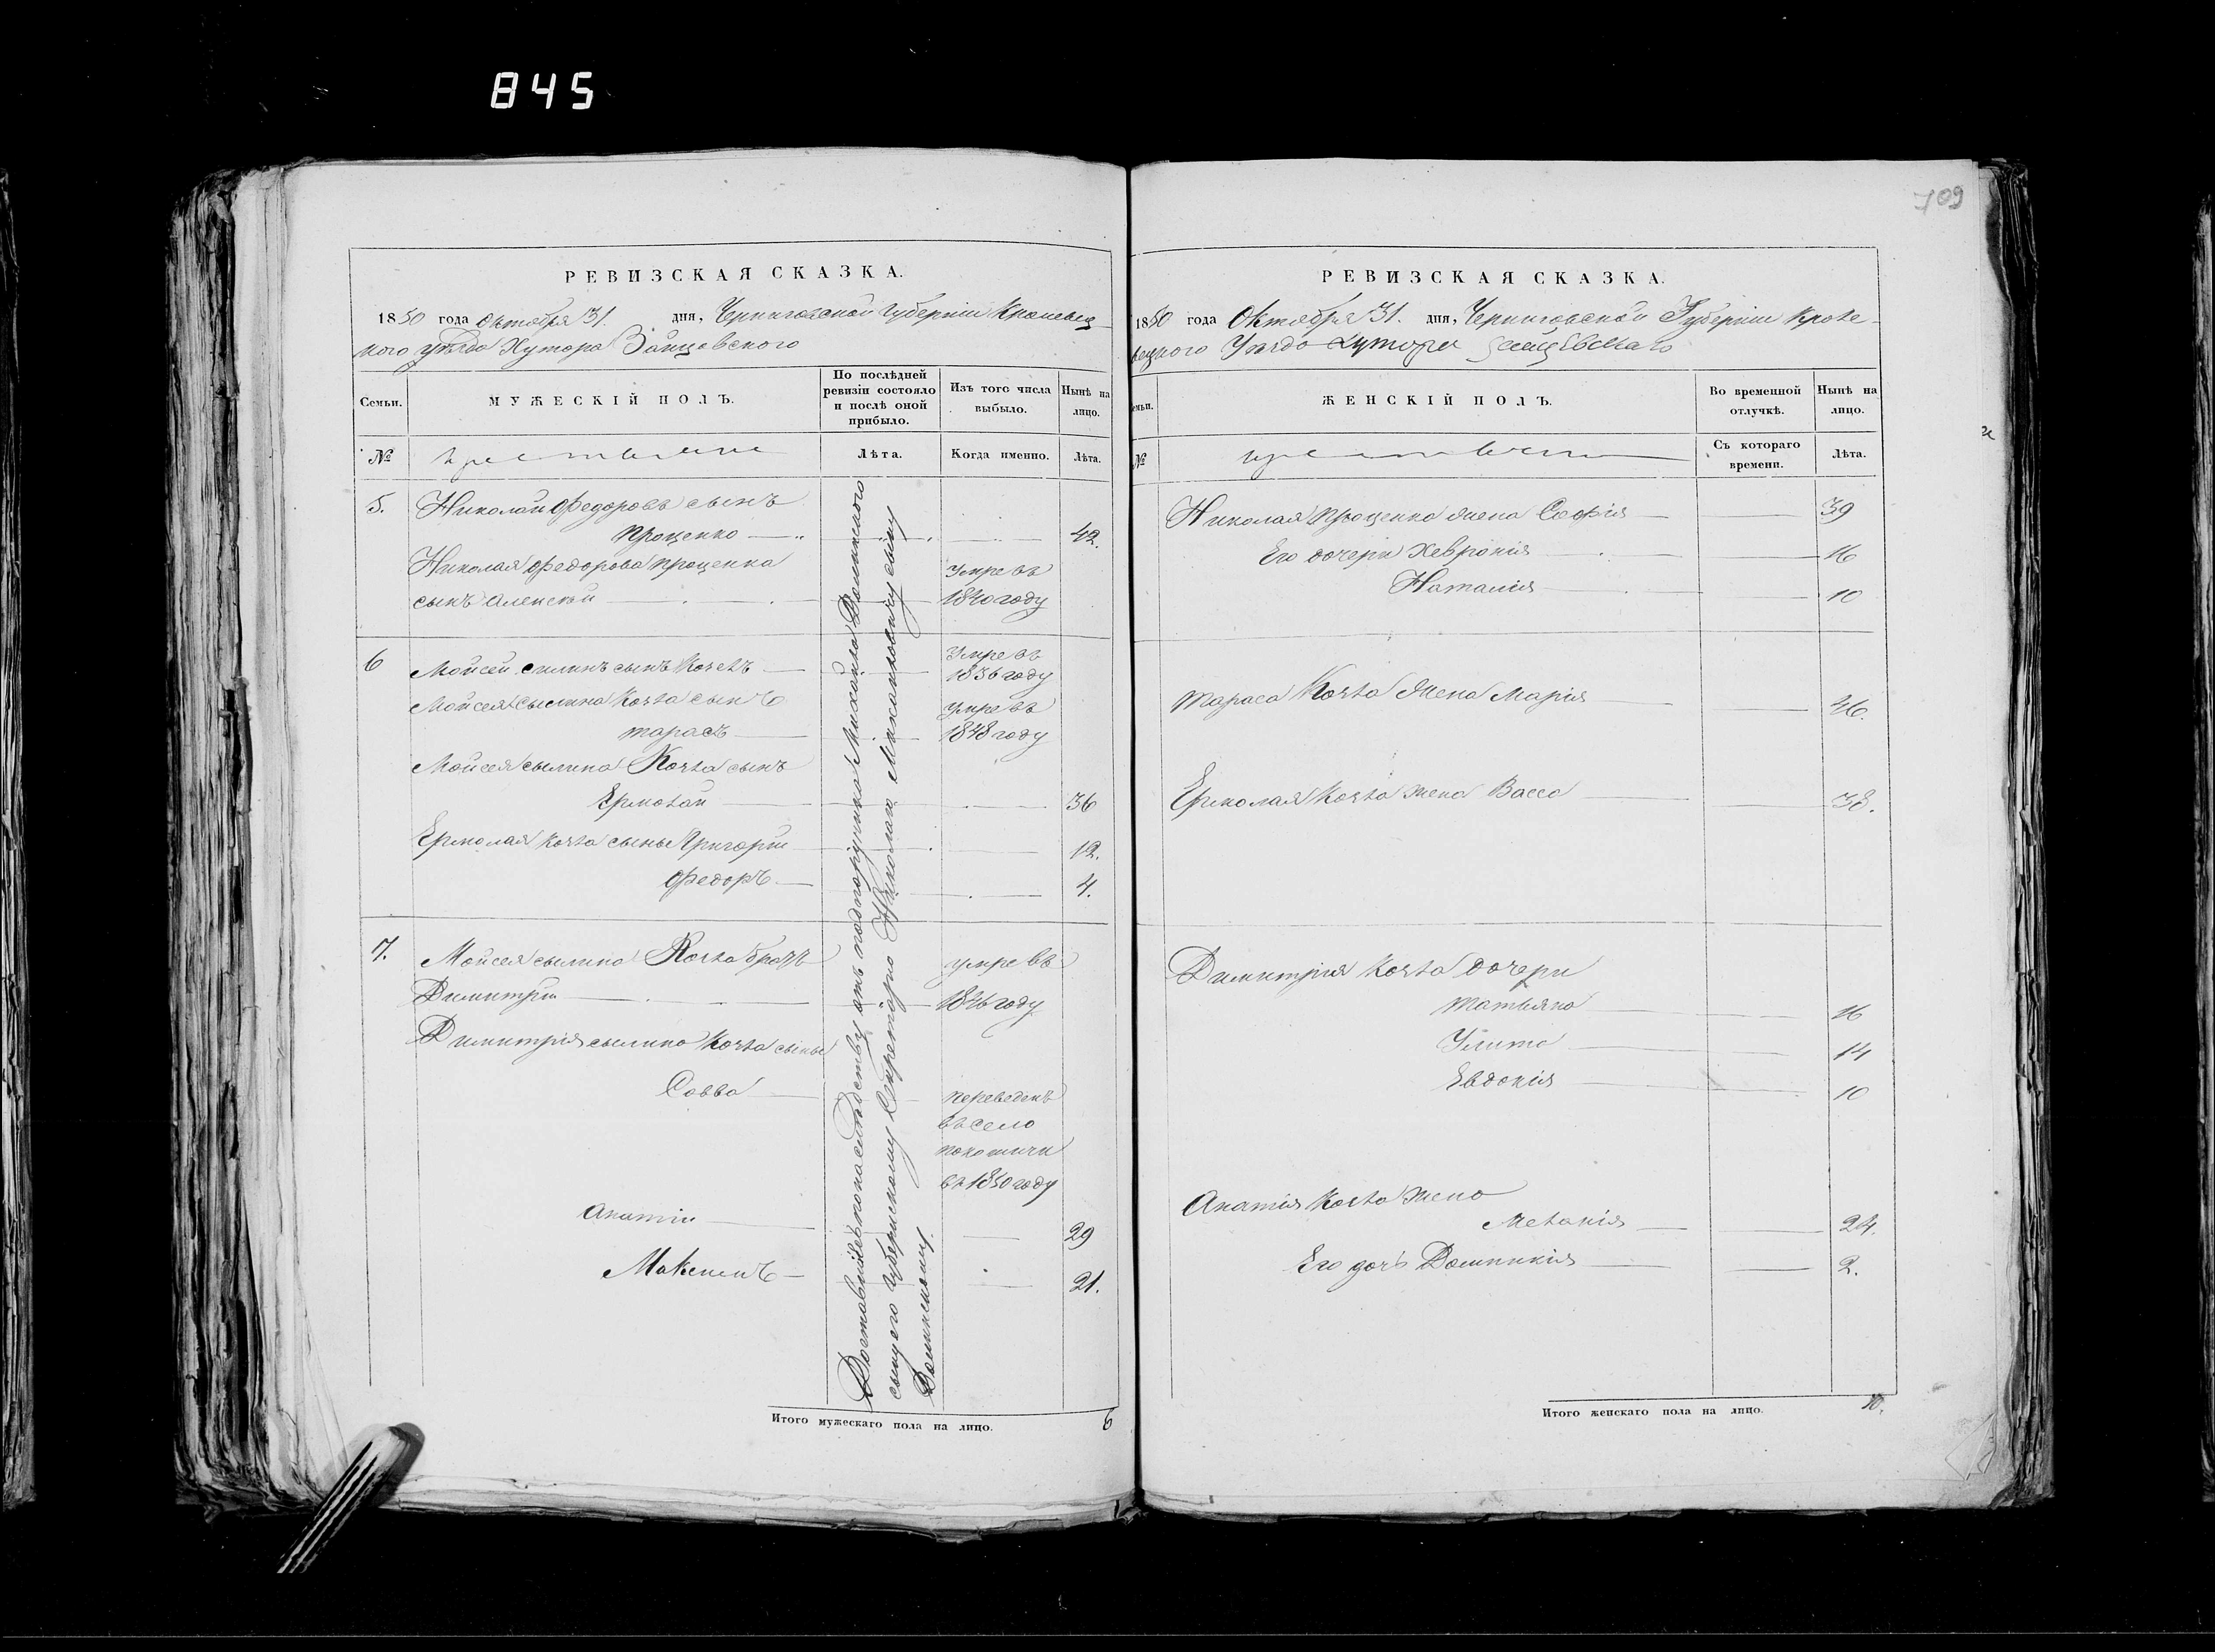 845
709
РЕВИЗСКАЯ СКАЗКА.
1850 года Октября 31. дня, Черниговской Губернии Кролевец-
кого уѣзда Хутора Зайцовского
Семьи.
МУЖЕСКІЙ ПОЛЪ.
По послѣдней ревизіи состояло и послѣ оной прибыло.
Изъ того числа выбыло.
Нынѣ на лицо.
№
крестьяне
Лѣта.
Когда именно.
Лѣта.
5. Николай Федоровъ сынъ
Проценко 42.
Николая Федорова Проценка Умре въ
сынъ Алексѣй 1840 году
6 Мойсей силинъ сынъ Козелъ Умре въ
1836 году
Мойсея сылина Козла сынъ умре въ
Тарасъ 1848 году
Мойсея сылина Козла сынъ
Ермолай 36
Ермолая Козла сыны Григорій 12.
Федоръ 4.
7. Мойсея сылина Козла братъ умре въ
Димитрій 1846 году
Димитрія сылина Козла сыны
Савва переведенъ
въ село
Покошичи
въ 1850 году
Анатій 29
Максимъ 21.
Доставшіеся по наслѣдству отъ подпоручика Михайла Долинского
сыну его Губернскому Секретарю Николаю Михайловичу сыну
Долинскому.
Итого мужескаго пола на лицо. 6
РЕВИЗСКАЯ СКАЗКА.
1850 года Октября 31. дня, Черниговской Губерніи Кроле-
вецкого Уѣзда Хутора
емьи.
ЖЕНСКІЙ ПОЛЪ.
Во временной отлучкѣ.
Нынѣ на лицо.
№
крестьяне
Съ котораго времени.
Лѣта.
Николая Проценка жена Софія 39
Его дочери Хевронія 16
Наталія 10
Тараса Козла жена Марія 46.
Ермолая Козла жена Васса 38.
Димитрія Козла дочери
Татьяна 16
Улита 14
Евдокія 10
Анатія Козла жена
Меланія 24.
Его дочь Домникія 2.
Итого женскаго пола на лицо. 10.